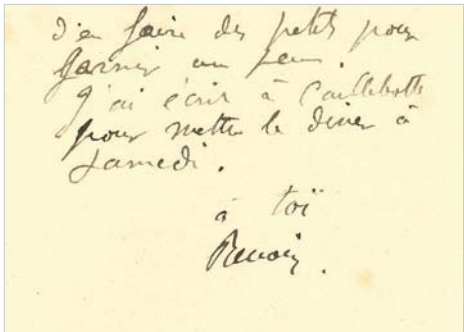 d'en faire des petits pour
garnir un peu.
J'ai écrit à Caillebotte
pour mettre le diner à
Samedi.
à toi
Renoir.